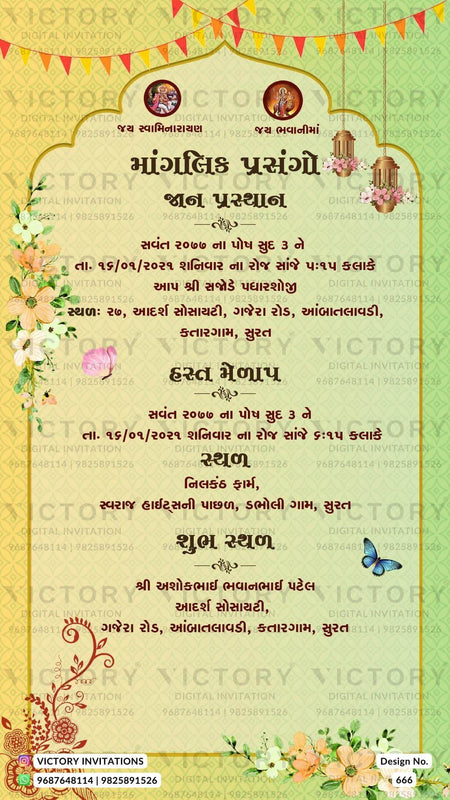 જય સ્વામિનારાયણ
જય ભવાનીમાં
માંગલિક પ્રસંગો
જાન પ્રસ્થાન
સવંત ૨૦૭૭ ના પોષ સુદ 3 ને
તા. ૧૬/૦૧/૨૦૨૧ શનિવાર ના રોજ સાંજે ૫:૧૫ કલાકે
આપ શ્રી સજોડે પધારશોજી
સ્થળ: ૨૭, આદર્શ સોસાયટી, ગજેરા રોડ, આંબાતલાવડી,
કતારગામ, સુરત
હસ્ત મેળાપ
સવંત ૨૦૭૭ ના પોષ સુદ 3 ને
તા. ૧૬/૦૧/૨૦૨૧ શનિવાર ના રોજ સાંજે ૬:૧૫ કલાકે
સ્થળ
નિલકંઠ ફાર્મ,
સ્વરાજ હાઈટ્સની પાછળ, ડભોલી ગામ, સુરત
શુભ સ્થળ
શ્રી અશોકભાઈ ભવાનભાઈ પટેલ
આદર્શ સોસાયટી,
ગજેરા રોડ, આંબાતલાવડી, કતારગામ, સુરત
VICTORY INVITATIONS
9687648114 | 9825891526
Design No.
666
VICTORY
DIGITAL INVITATION
9687648114 | 9825891526